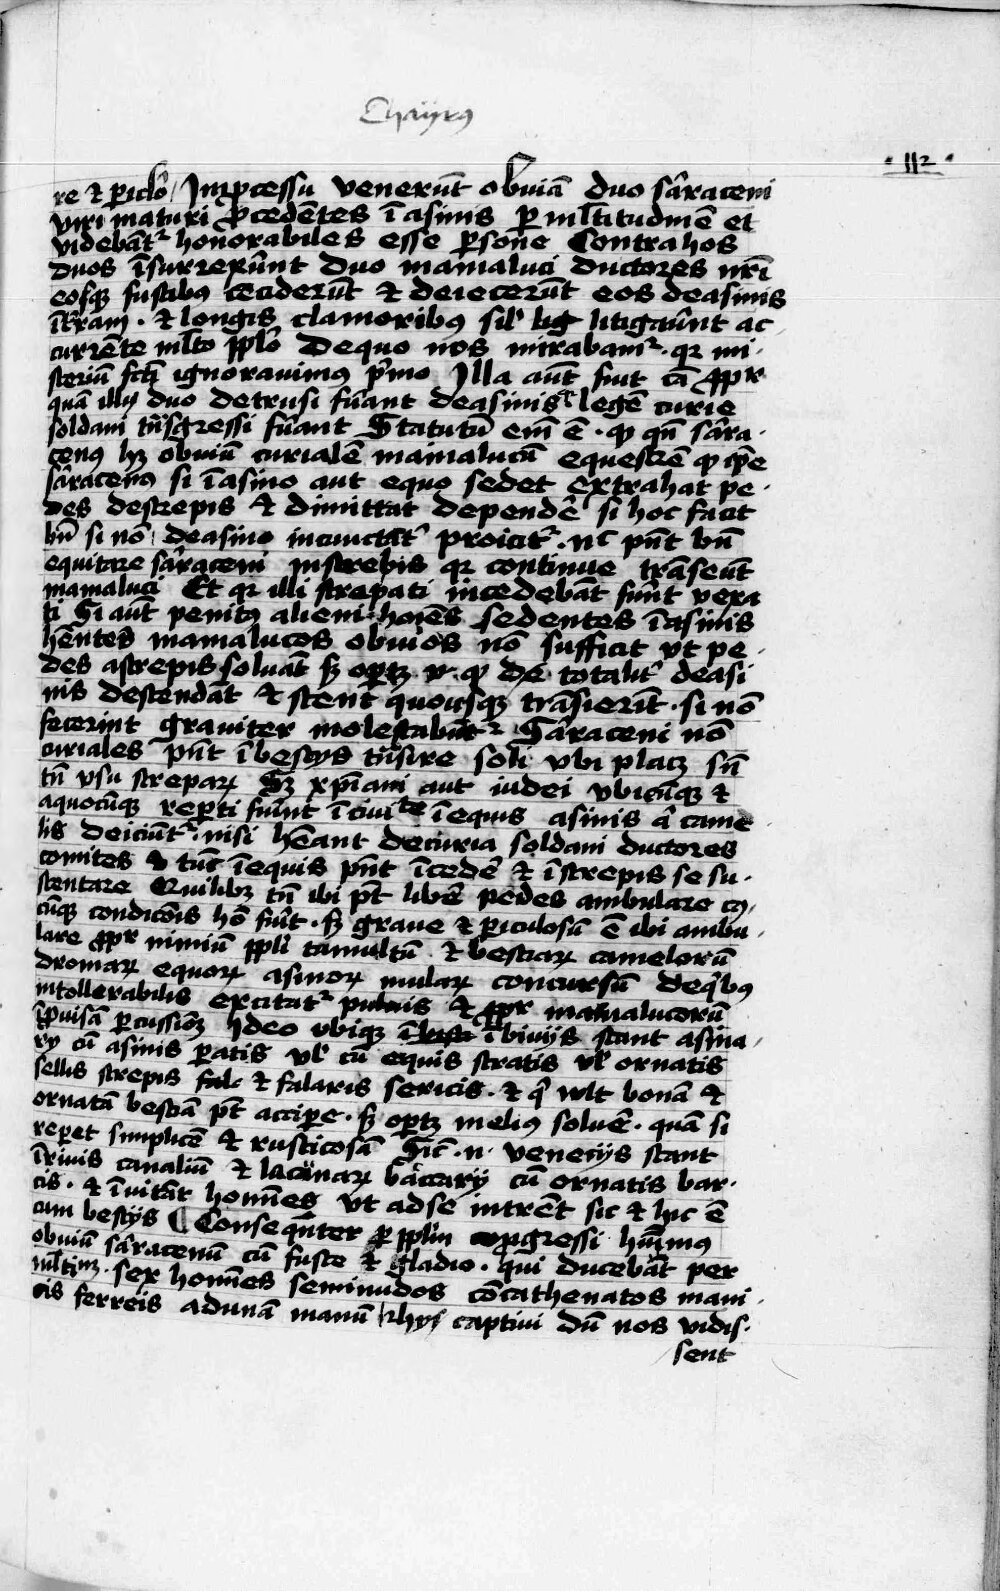 Chaijrꝰ
· 112 ·
re et piclō / Inpcessu veneru̅t obviā duo sāraceni
viri maturi pcedētes ī asinis p ml̅titudinē et
videbāt᷑ honorabiles esse psone Contra hos
duos īsurrexūnt duo mamaluci ductores nr̄i
eosqꝫ fustibꝯ cecideru̅t et deiecerūt eos de asinis
īt̄ram . et longis clamoribꝯ sil̕ litigaūnt ac
currēte ml̅to pplō De quo nos mirabam᷑ . qr mi-
steriū fct̄i ignoravimꝯ pͥmo Illa aūt fuit cā ppr
quā illij duo detrusi fūant de asinis legē curie
soldani tn̄sgressi fūant Statutū em̄ ē . qꝫ qn̄ sāra-
cenꝯ hꝫ obviū curialē mamalucū equestrē
sāracenꝯ si ī asino aut equo sedet extrahat pe-
des de strepis et dimittat dependē si hoc facit
bn̄ si nō / de asino incunctāt̕ proicit᷑ . nc̄ pn̄t bn̄
equitare sāraceni in strebis qr continue trāseūt
mamaluci Et qr illi strepati incedebāt fūnt vexa
ti Si aūt penitꝯ alieni hoı̄es sedentes ī asinis
hēntes mamalucos obviōs nō sufficit vt pe-
des a strepis solvāt sꝫ optꝫ totalit̕ de asi
nis descendāt et stent quousqꝫ trāsierīt . si nō
fecerint graviter molestabūt᷑ Sāraceni nō
curiales pn̄t ī bestijs tn̄sire soli vbi placꝫ sn̄
tn̄ vsu strepaꝝ Sꝫ xp̄iani aut iudei vbicūqꝫ et
a quocūqꝫ repti fūint ī civitate ī equis asinis a came
lis deiciūt᷑ . nisi hēant de curia soldani ductores
comites et tūc ī equis pn̄t īcedē et ī strepis se su-
stentare Quilibꝫ tn̄ ibi pt̄ libē pedes ambulare cꝯ-
cūqꝫ condicōis hō fūit . sꝫ grave et piculosū ē ibi ambu-
lare ppr nimiū ppl̄i tumultū et bestiaꝝ camelorū
dromaꝝ equoꝝ asinoꝝ mulaꝝ concursū de qͥbꝯ
intollerabilis excitat᷑ pulvis et ppr mamalucorū
īpvisā pcussionꝫ Ideo vbiqꝫ ī bivijs stant asina-
rij cū asinis patis vl̕ cū equis stratis vl̕ ornatis
sellis strepis et falaris sericis . et qͥ vult bonā et
ornatā bestiā pt̄ accipe . sꝫ optꝫ meliꝯ solvē . quā si
repet simplicē et rusticosā Sic̄ . n . venecijs stant
ī rivis canaliū et lacūnaꝝ barcarij cū ornatis bar-
cis . et īvitāt homı̄es vt ad se intrēt sic et hic ē
cum bestijs ¶ Conseqͣnter p ppl̄m pgressi hūimꝯ
obviū sāracenū cū fuste et gladio . qui ducebāt per
ml̅tinꝫ . sex homı̄es seminudos cōcathenatos mani-
cis ferreis ad unā manū captivi dū nos vidis-
sent